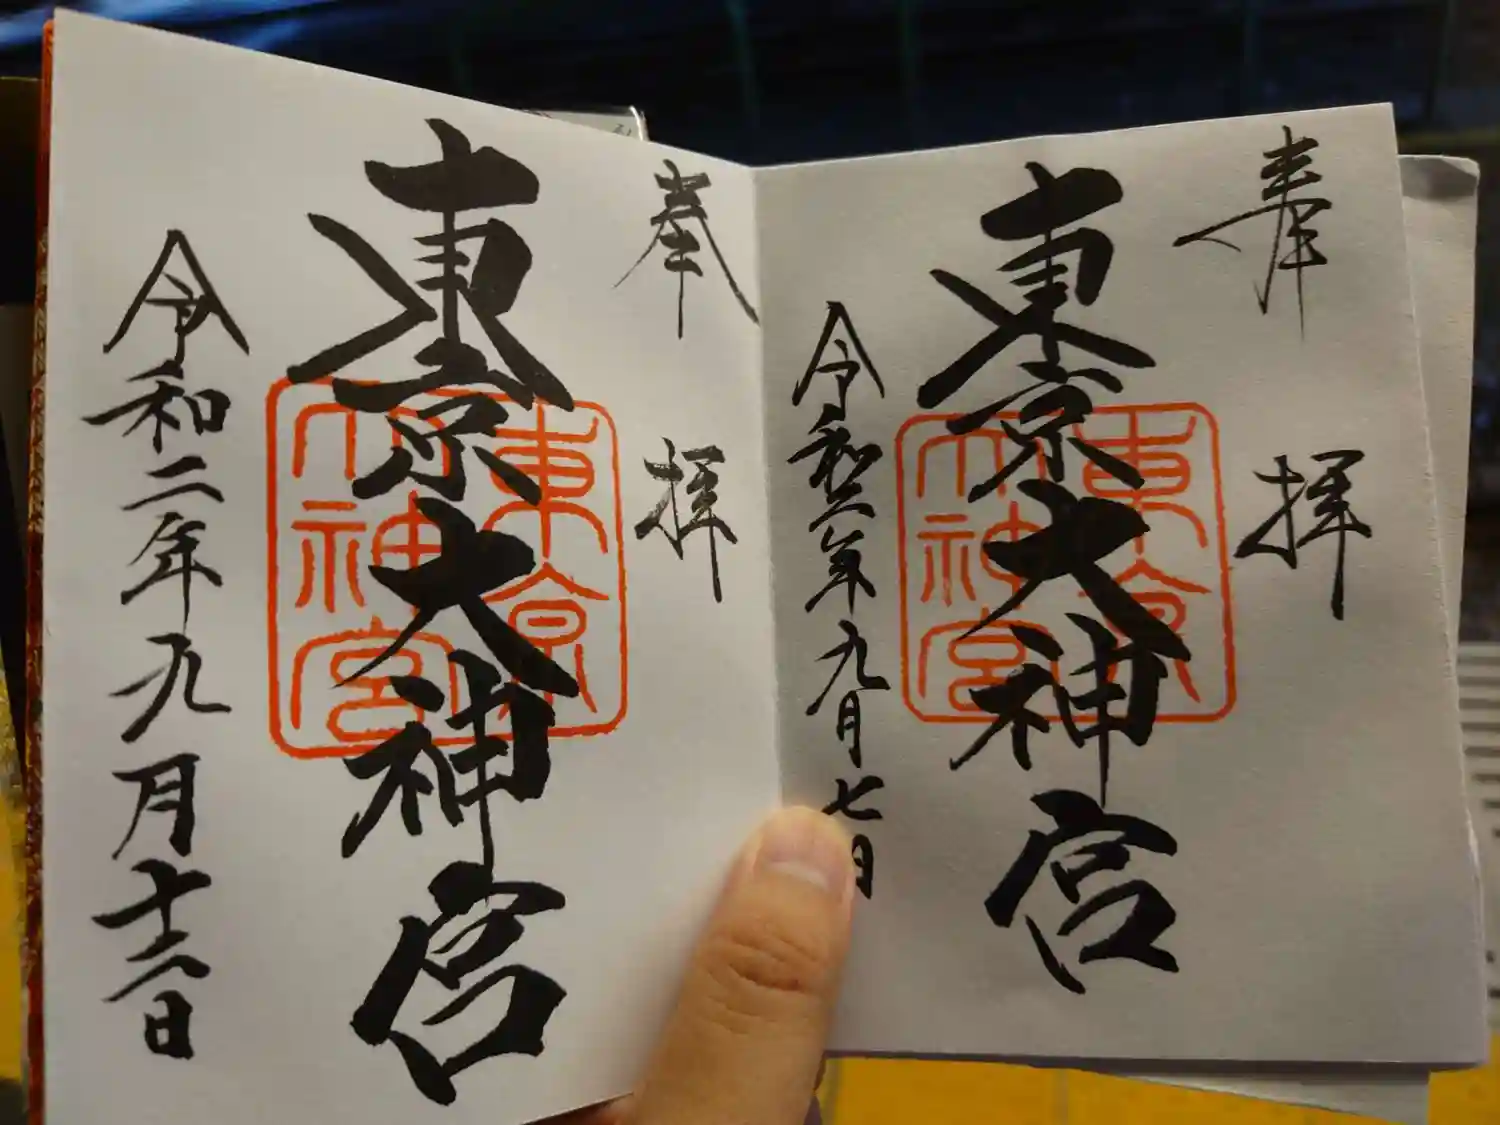 奉拝
東京大神宮
令和二年九月七日
東京
大神宮
奉拝
東京大神宮
令和二年九月十六日
東京
大神宮